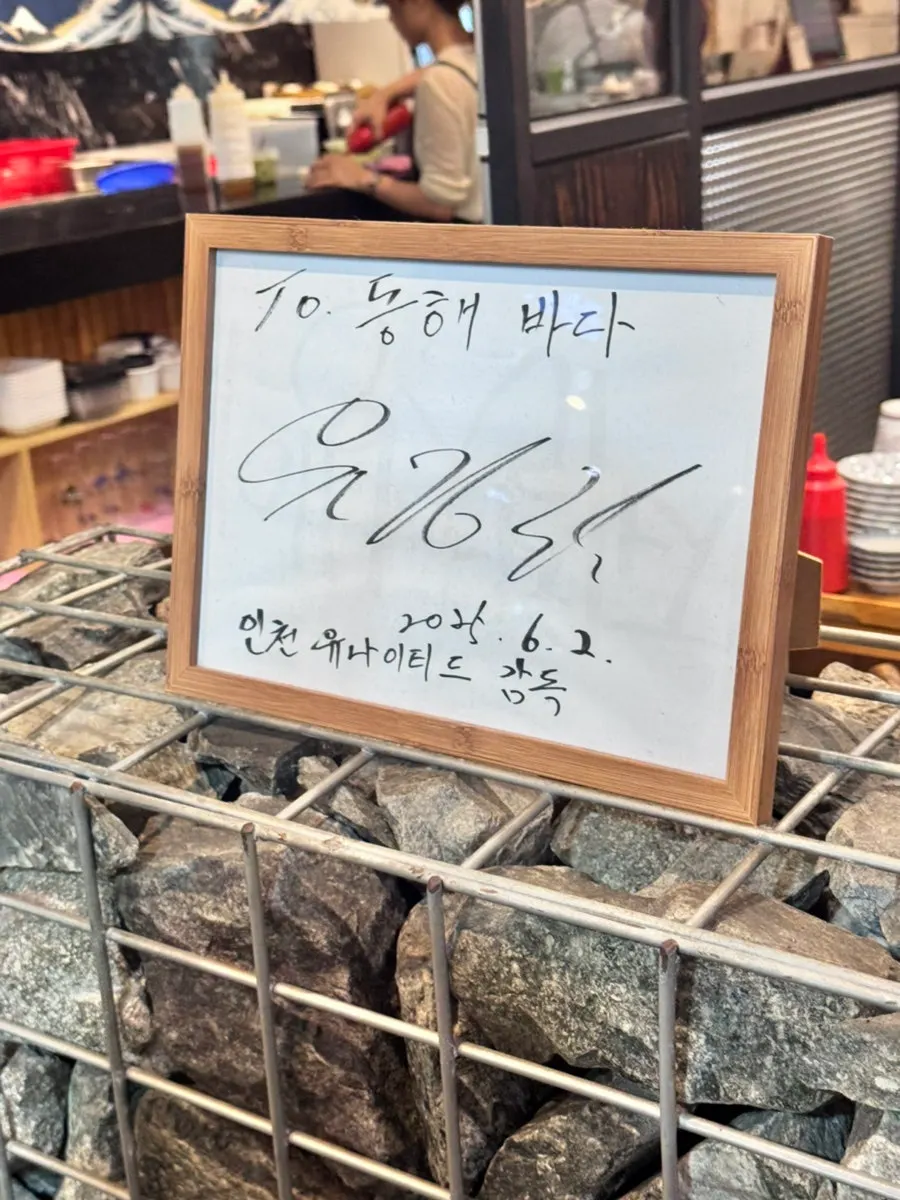 To. 동해 바다
2025. 6. 2.
인천 유나이티드 감독